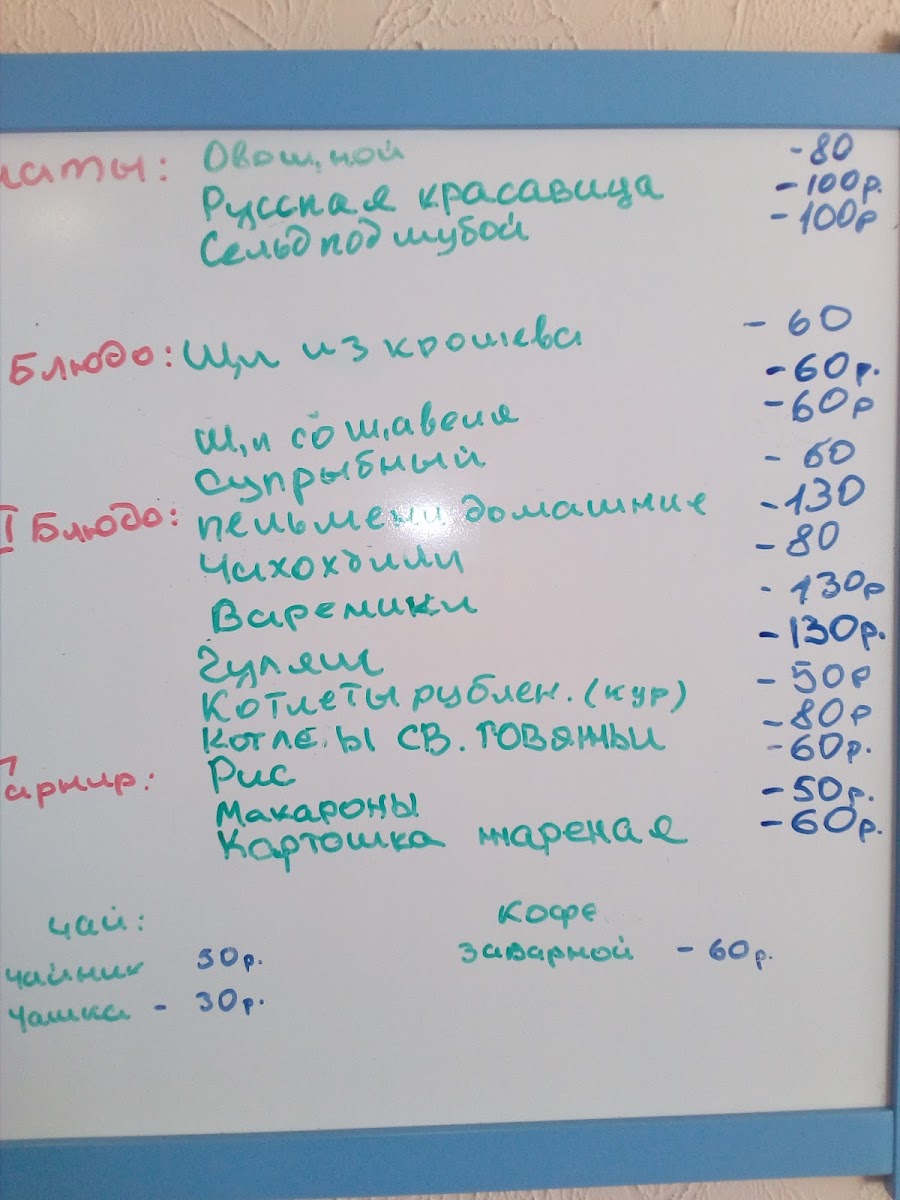 латы: Овощной - 80
Русская красавица - 100р.
Сельд под шубой - 100р
Блюдо: Щи из крошева - 60
- 60р.
Щи со щавеля - 60р
Суп рыбный - 60
II Блюдо: пельмени домашние - 130
Чахохбили - 80
Вареники - 130р
Гуляш - 130р.
Котлеты рублен. (кур) - 50р
Котлеты св. говяжьи - 80р
Гарнир: Рис - 60р.
Макароны - 50р.
Картошка жареная - 60р.
Чай: Кофе
чайник 50р. заварной - 60р.
чашка - 30р.